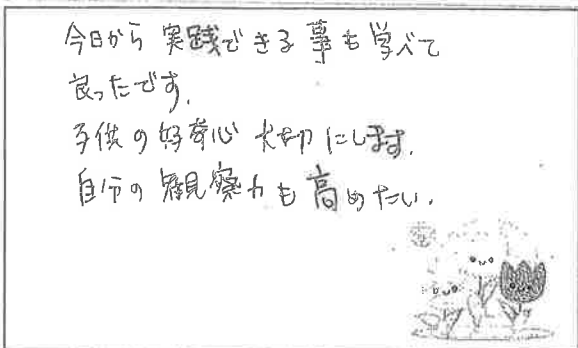 今日から実践できる事も学べて
良ったです.
子供の好奇心大切にします.
自分の観察力も高めたい.